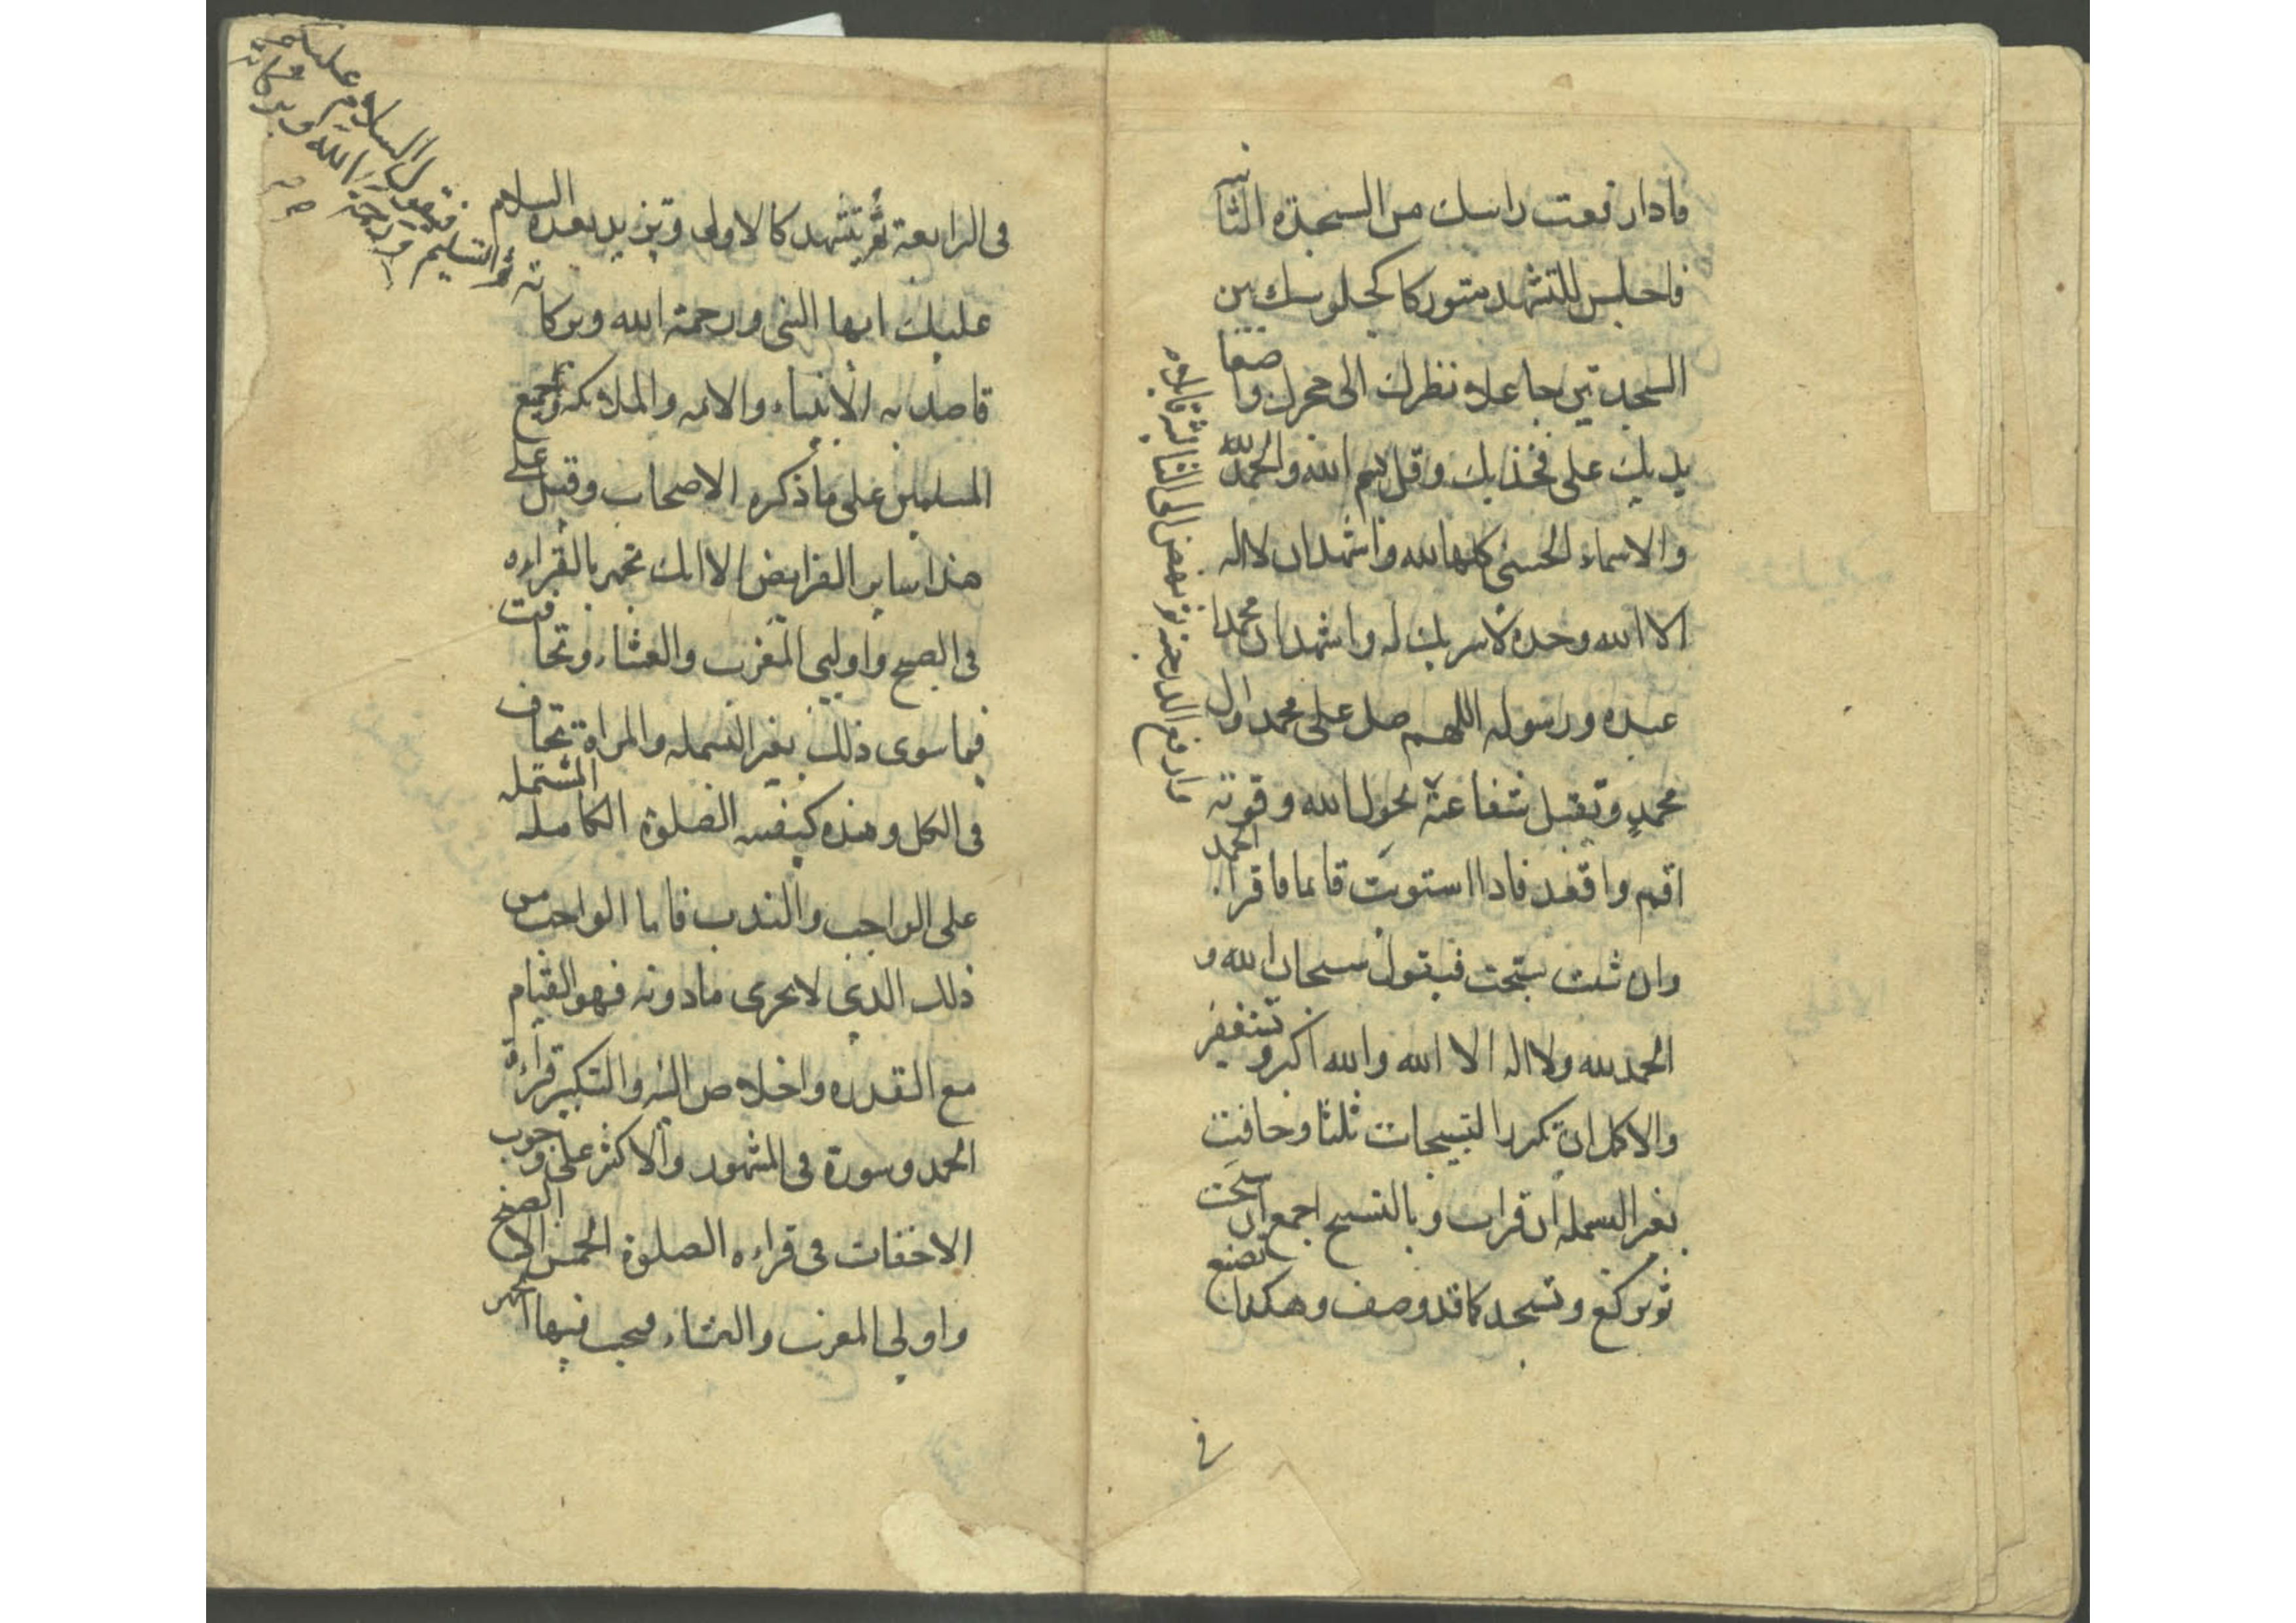 فاذا رفعت راسك من السجدة الثانيه
فاجلس للتشهد متوركا كجلوسك بين
السجدتين جاعلا نظرك الى حجرك واضعا
يديك على فخذيك وقل بسم الله والحمد لله
والاسماء الحسنى كلها لله واشهد ان لا اله
الا الله وحده لا شريك له واشهد ان محمدا
عبده ورسوله اللهم صل على محمد وال
محمد وتقبل شفاعته وارفع الدرجته ثم تنهض الى الثالثه قايلا
بحول الله وقوته
اقوم واقعد فاذا استويت قايما فاقرا الحمد
وان شئت سبحت فيقول سبحان الله و
الحمد لله ولا اله الا الله والله اكبر وتستغفر
والاكمل ان تكرر التسبيحات ثلثا وخافت
بغير البسمله ان قرات وبالتسبيح اجمع ان سبحت
ثم تركع وتسجد كما قد وصف وهكذا تصنع
فى
فى الرابعة ثم تتشهد كالاولى وتزيد بعده السلام
عليك ايها النبى ورحمة الله وبركاته
ثم التسليم فيقول السلام عليكم
ورحمة الله وبركاته
صح
قاصدا به الانبياء والائمه والملائكه وجميع
المسلمين على ما ذكره الاصحاب وقس على
هذا ساير الفرايض الا انك تجهر بالقراءه
فى الصبح واوليى المغرب والعشاء وتخافت
فيما سوى ذلك بغير البسمله والمراة تخافت
فى الكل وهذه كيفيه الصلوة الكامله المشتمله
على الواجب والندب فاما الواجب من
ذلك الذي لا يجزى ما دونه فهو القيام
مع القدره واخلاص النيه والتكبير وقراءة
الحمد وسورة فى المشهور والاكثر على وجوب
الاخفات فى قراءه الصلوة الخمس الا فى الصبح
واولى المغرب والعشاء فيجب فيها الجهر